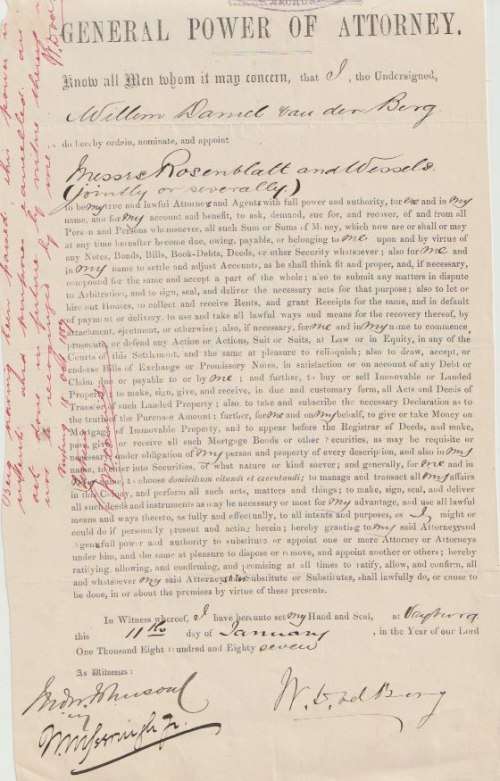 GENERAL POWER OF ATTORNEY.
Know all Men whom it may concern, that I, the Undersigned,
Willem Daniel van den Berg
do hereby ordain, nominate, and appoint
Messrs Rosenblatt and Wessels.
(jointly or severally)
to be my true and lawful Attorneys and Agents with full power and authority, for me and in my
name, and for my account and benefit, to ask, demand, sue for, and recover of and from all
Person and Persons whomsoever, all such Sum or Sums of Money, which now are or shall or may
at any time hereafter become due, owing, payable, or belonging to me upon and by virtue of
any Notes, Bonds, Bills, Book-Debts, Deeds, or other Security whatsoever; also for me and
in my name to settle and adjust Accounts, as he shall think fit and proper, and, if necessary,
compound for the same and accept a part of the whole; also to submit any matters in dispute
to Arbitration, and to sign, seal, and deliver the necessary acts for that purpose; also to let or
hire out Houses, to collect and receive Rents, and grant Receipts for the same, and in default
of payment or delivery, to use and take all lawful ways and means for the recovery thereof, by
attachment, ejectment, or otherwise; also, if necessary, for me and in my name to commence,
prosecute or defend any Action or Actions, Suit or Suits, at Law or in Equity, in any of the
Courts of this Settlement, and the same at pleasure to relinquish; also to draw, accept, or
endorse Bills of Exchange or Promissory Notes, in satisfaction or on account of any Debt or
Claim due or payable to or by me; and further, to buy or sell Immovable or Landed
Property; to make, sign, give, and receive, in due and customary form, all Acts and Deeds of
Transfer of such Landed Property; also to take and subscribe the necessary Declaration as to
the truth of the Purchase Amount; further, for me and on my behalf, to give or take Money on
Mortgage of Immovable Property, and to appear before the Registrar of Deeds, and make,
pass, give, or receive all such Mortgage Bonds or other Securities, as may be requisite or
necessary under obligation of my person and property of every description, and also in my
name, to enter into Securities, of what nature or kind soever; and generally, for me and in
my name, to choose domicilium citandi et executandi; to manage and transact all my affairs
in this Colony, and perform all such acts, matters and things; to make, sign, seal, and deliver
all such deeds and instruments as may be necessary or most for my advantage, and use all lawful
means and ways thereto, as fully and effectually, to all intents and purposes, as I might or
could do if personally present and acting herein; hereby granting to my said Attorneys and
Agents full power and authority to substitute or appoint one or more Attorney or Attorneys
under him, and the same at pleasure to dispose or remove, and appoint another or others; hereby
ratifying, allowing, and confirming, and promising at all times to ratify, allow, and confirm, all
and whatsoever my said Attorneys or Substitute or Substitutes, shall lawfully do, or cause to
be done, in or about the premises by virtue of these present.
In Witness whereof, I have hereunto set my Hand and Seal, at Vryburg
this 11th day of January, in the Year of our Lord
One Thousand Eight Hundred and Eighty seven
As Witnesses:
W. D. vd Berg